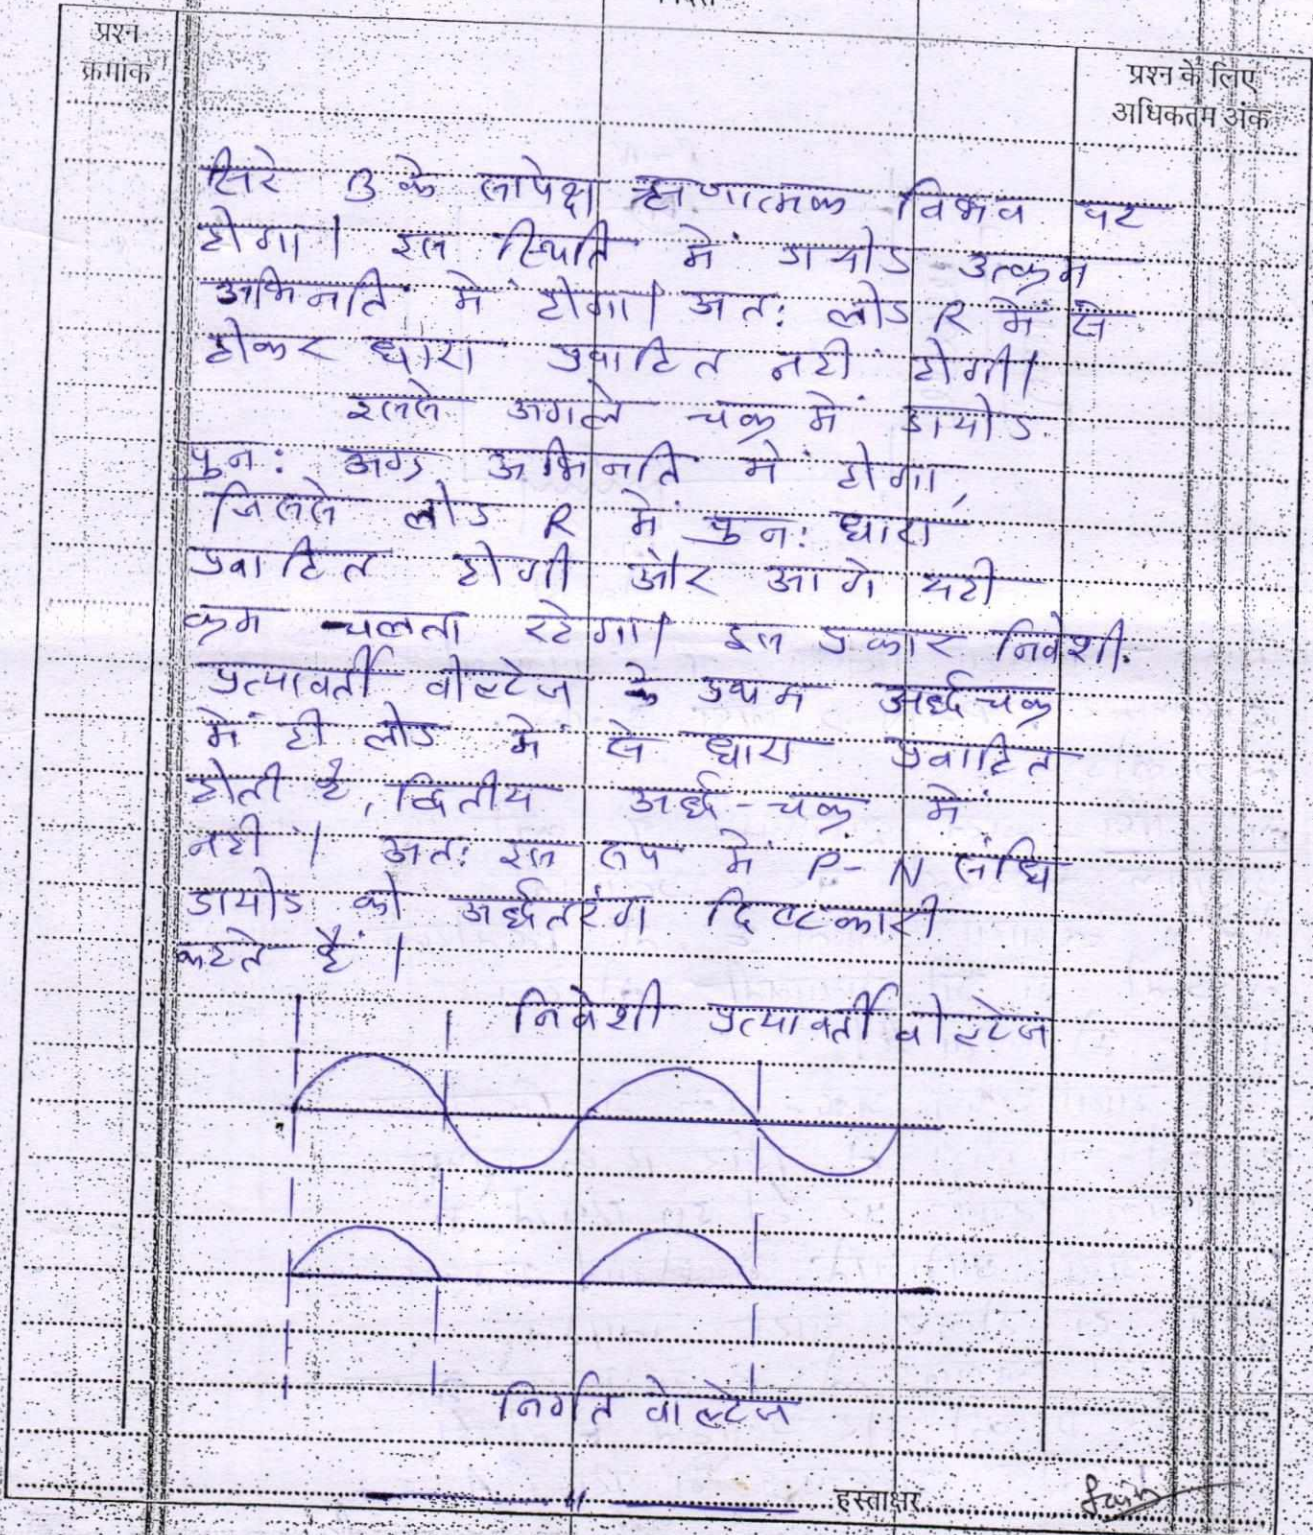 प्रश्न
क्रमांक
प्रश्न के लिए
अधिकतम अंक
सिरे B के सापेक्ष ऋणात्मक विभव पर
होगा। इस स्थिति में डायोड उत्क्रम
अभिनति में होगा। अत: लोड R में से
होकर धारा प्रवाहित नहीं होगी।
इससे अगले चक्र में डायोड
पुन: अग्र अभिनति में होगा,
जिससे लोड R में पुन: धारा
प्रवाहित होगी और आगे यही
क्रम चलता रहेगा। इस प्रकार निवेशी
प्रत्यावर्ती वोल्टेज के प्रथम अर्द्धचक्र
में ही लोड में से धारा प्रवाहित
होती है, द्वितीय अर्द्ध-चक्र में
नहीं। अत: इस रूप में P-N संधि
डायोड को अर्द्धतरंग दिष्टकारी
कहते हैं।
निवेशी प्रत्यावर्ती वोल्टेज
निर्गत वोल्टेज
हस्ताक्षर